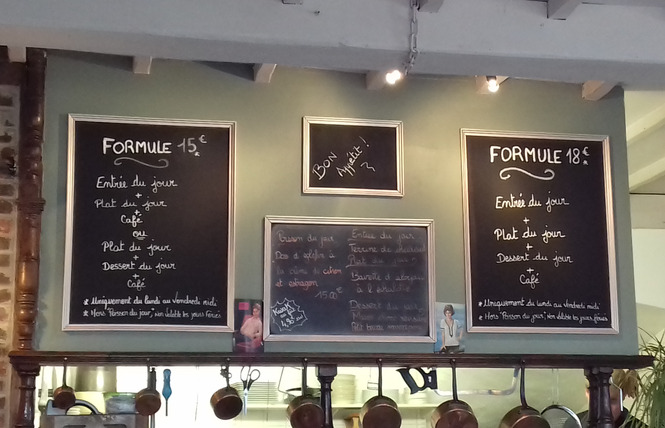 FORMULE 15 €
*
Entrée du jour
+
Plat du jour
+
Café
ou
Plat du jour
+
Dessert du jour
+
Café
* Uniquement du lundi au Vendredi midi
* Hors "Poisson du jour", Non Valable les jours Fériés
BON
Appétit !
Poisson du jour
Dos d'églefin à
la crème de citron
et estragon
15.00 €
4,50 €
Entrée du jour
Terrine de
Plat du jour
Bavette d'aloyau
à l'échalote
Dessert du jour
FORMULE 18 €
*
Entrée du jour
+
Plat du jour
+
Dessert du jour
+
Café
* Uniquement du lundi au Vendredi midi
* Hors "Poisson du jour", Non Valable les jours fériés